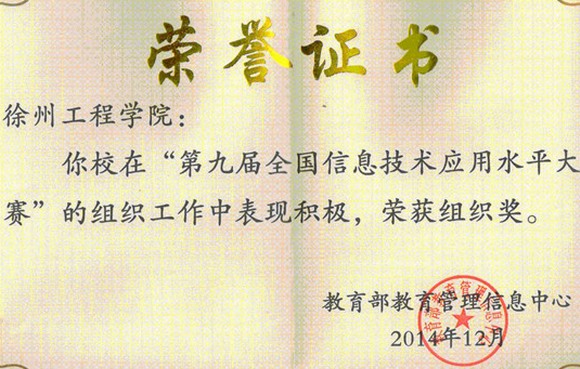 荣誉证书
徐州工程学院：
你校在“第九届全国信息技术应用水平大
赛”的组织工作中表现积极，荣获组织奖。
教育部教育管理信息中心
2014年12月
教育部教育管理信息中心